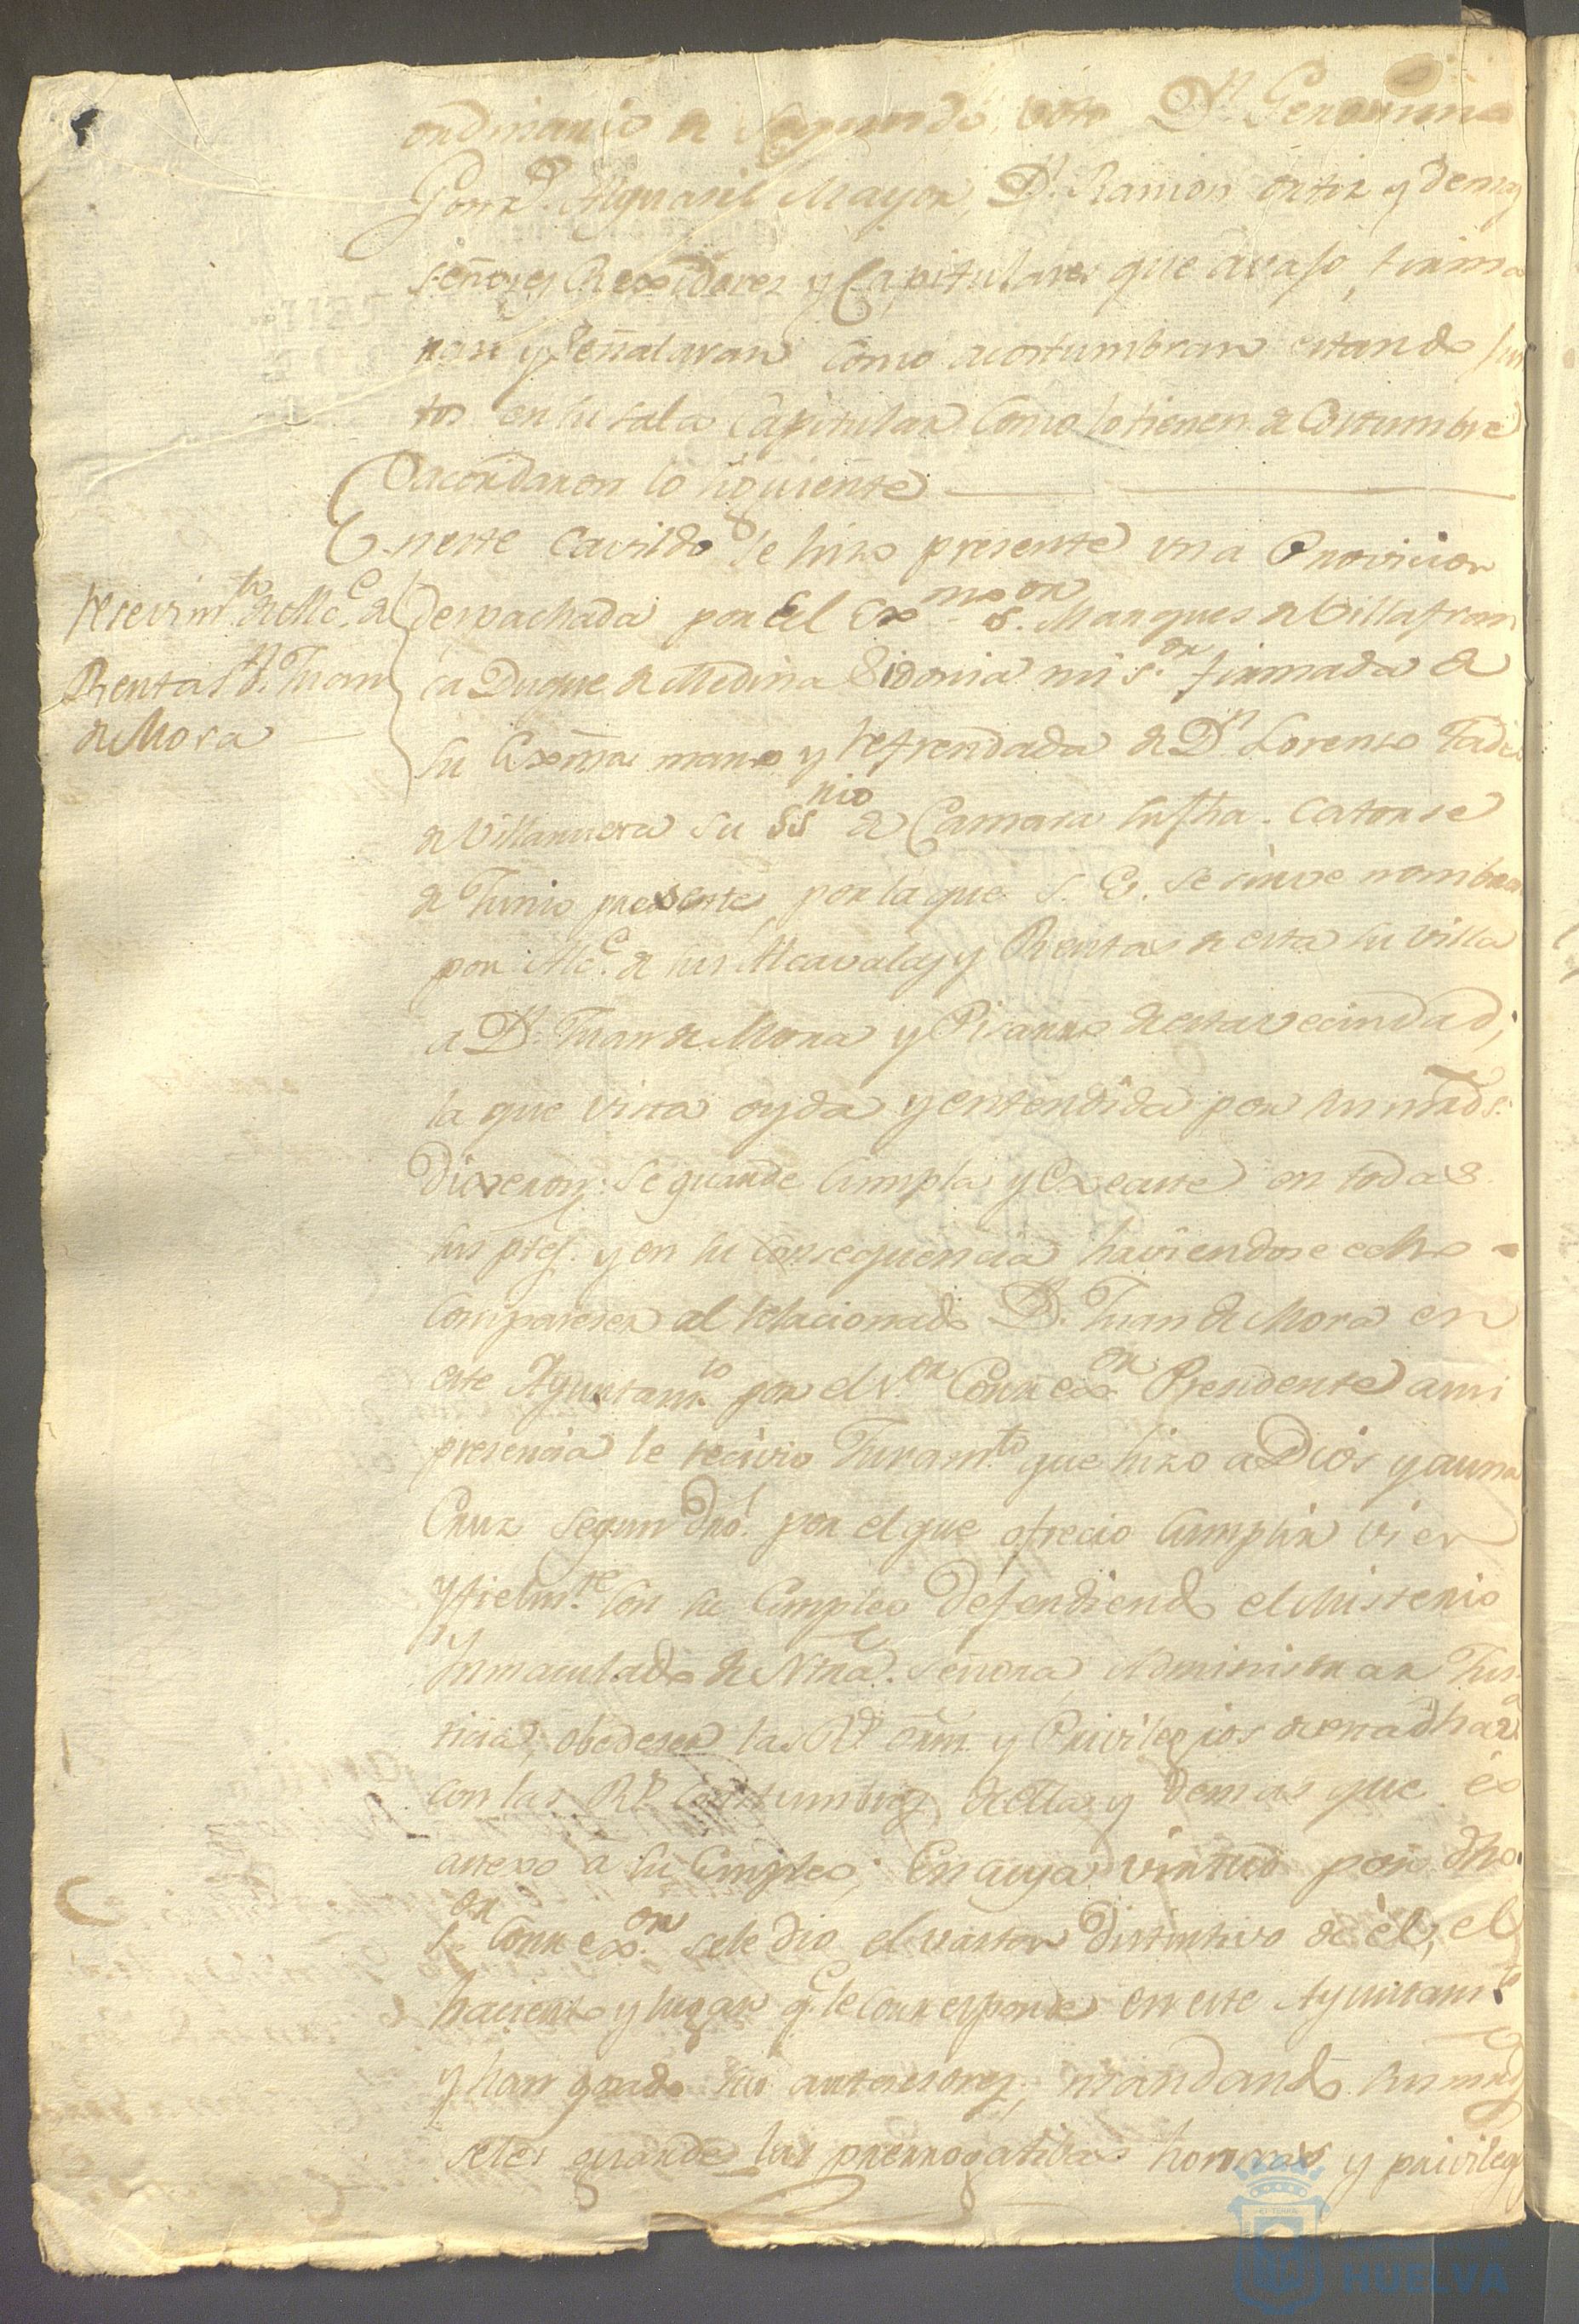 ordinario de segundo voto Dn. Geronimo
Gonz. Alguasil Mayor, Dn. Ramon ortiz y demas
señores Rexidores y Capitulares que avajo, firma
ran y señalaran como acostumbran estando jun
tos en su sala Capitular Como lo tienen de Costumbre
acordaron lo siguiente
En este Cavildo se hizo presente una Provicion
Resevimto. de Alce. de
Rentas Dn. Juan
de Mora
despachada por el Exmo. sor. Marques de Villafran
ca Duque de Medina Sidonia mi sor. firmada de
su Exma mano y refrendada de Dn Lorenso Tadeo
de Villanueva su ssnio de Camara su fha. catorse
de Junio presente, por la que S. E. se sirve nombrar
por Alce. de sus Alcavalas y Rentas de esta su villa
a Dn. Juan de Mora y Pisarro de esta vecindad;
la que vista oyda y entendida por sus mrds.
Dixeron; se guarde Cumpla y Execute en todas
sus ptes. y en su Consequencia haviendose echo
Compareser al relacionado Dn. Juan de Mora en
este Ayuntamto. por el sor. Correxor. Precidente a mi
presencia le recivio Juramto. que hizo a Dios y a una
Cruz segun dro. por el que ofrecio Cumplir vien
y fielmte. Con su Empleo defendiendo el Misterio
Ynmaculado de Ntra. Señora, Administrar Jus
ticia, obedeser las Rs. orns. y Privilegios de esta dha
con las Rs. Costumbres de ella y demas que es
anexo a su Empleo; En cuya virtud por dho.
sor. Correxor. se le dio el vaston distintivo de èl, el
haciento y lugar qe. le Corresponde en este Ayuntamto.
y han gosado sus antesesores, mandando sus mrds
se les guarde las prerrogatibas honrras y privileg
HUELVA